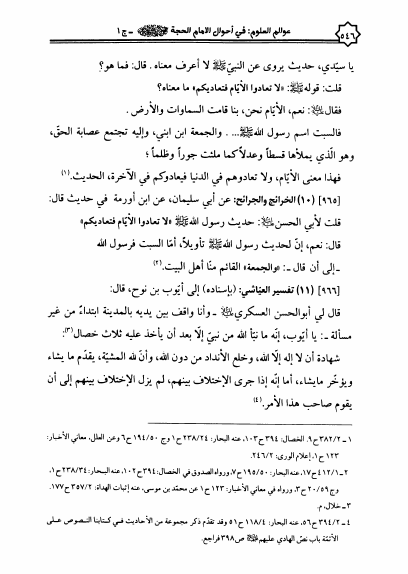 ٥٤٦
عوالم العلوم: في أحوال الإمام الحجة ﷺ ـ ج١
يا سيّدي، حديث يروى عن النبيّ ﷺ لا أعرف معناه. قال: فما هو؟
قلت: قوله ﷺ: «لا تعادوا الأيّام فتعاديكم» ما معناه؟
فقال: نعم، الأيّام نحن، بنا قامت السماوات والأرض.
فالسبت اسم رسول الله ﷺ... والجمعة ابن ابني، وإليه تجتمع عصابة الحقّ،
وهو الّذي يملأها قسطاً وعدلاً كما ملئت جوراً وظلماً؛
فهذا معنى الأيّام، ولا تعادوهم في الدنيا فيعادوكم في الآخرة، الحديث.(١)
[٩٦٥] (١٠) الخرائج والجرائح: عن أبي سليمان، عن ابن أورمة في حديث قال:
قلت لأبي الحسن: حديث رسول الله ﷺ «لا تعادوا الأيّام فتعاديكم»
قال: نعم، إنّ لحديث رسول الله ﷺ تأويلاً، أمّا السبت فرسول الله
ـ إلى أن قال ـ: «والجمعة» القائم منّا أهل البيت.(٢)
[٩٦٦] (١١) تفسير العيّاشي: (بإسناده) إلى أيّوب بن نوح، قال:
قال لي أبوالحسن العسكري ـ وأنا واقف بين يديه بالمدينة ابتداءً من غير
مسألة ـ: يا أيّوب، إنّه ما نبّأ الله من نبيّ إلّا بعد أن يأخذ عليه ثلاث خصال(٣).
شهادة أن لا إله إلّا الله، وخلع الأنداد من دون الله، وأن لله المشيّة، يقدّم ما يشاء
ويؤخّر مايشاء، أما إنّه إذا جرى الإختلاف بينهم، لم يزل الإختلاف بينهم إلى أن
يقوم صاحب هذا الأمر.(٤)
١ ـ ٣٨٢/٢ ح٩. الخصال: ٣٩٤ ح١٠٣، عنه البحار: ٢٣٨/٢٤ ح١ وج ١٩٤/٥٠ ح٦ وعن العلل. معاني الأخبار:
١٢٣ ح١. إعلام الورى: ٢٤٦/٢.
٢ـ ٤١٢/١ ح١٧، عنه البحار: ١٩٥/٥٠ ح٧، ورواه الصدوق في الخصال: ٣٩٤ ح١٠٢، عنه البحار: ٢٣٨/٣٤ ح١،
وج ٢٠/٥٩ ح٣، ورواه في معاني الأخبار: ١٢٣ ح١ عن محمّد بن موسى، عنه إثبات الهداة: ٣٥٧/٢ ح١٧٧.
٣ ـ خلال، م.
٤ ـ ٣٩٤/٢ ح٥٦، عنه البحار: ١١٨/٤ ح٥١ وقد تقدّم ذكر مجموعة من الأحاديث في كتابنا النصوص على
الأئمّة باب نصّ الهادي عليهم ص٣٩٨ فراجع.